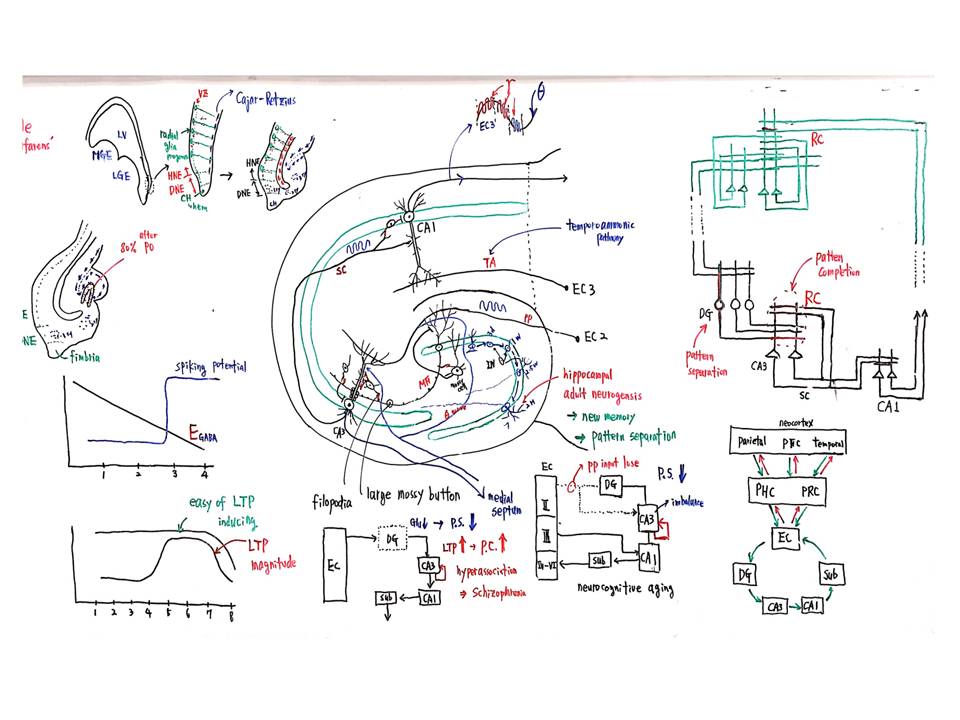 VZ
Cajar-Retzius
LV
MGE
LGE
radial
glia
HNE
DNE
CH
HNE
DNE
CH
after
80% PO
fimbria
spiking potential
EGABA
1 2 3 4
easy of LTP
inducing
LTP
magnitude
1 2 3 4 5 6 7 8
r
θ
EC3'
CA1
SC
temporoammonic
pathway
TA
EC3
PP
EC2
IN
IN
MF
hippocampal
adult neurogensis
→ new memory
→ pattern separation
CA3
filopodia
large mossy button
medial
septum
EC
DG
CA3
CA1
Sub
Glu↓ → P.S.↓
LTP↑ → P.C.↑
hyperassociation
⇒ Schizophrenia
EC
pp input lose
P.S.↓
II
III
IV-VI
DG
CA3
imbalance
CA1
Sub
neurocognitive aging
RC
patten
completion
RC
DG
pattern
separation
CA3
SC
CA1
neocortex
parietal PFC temporal
PHC PRC
EC
DG
Sub
CA3
CA1